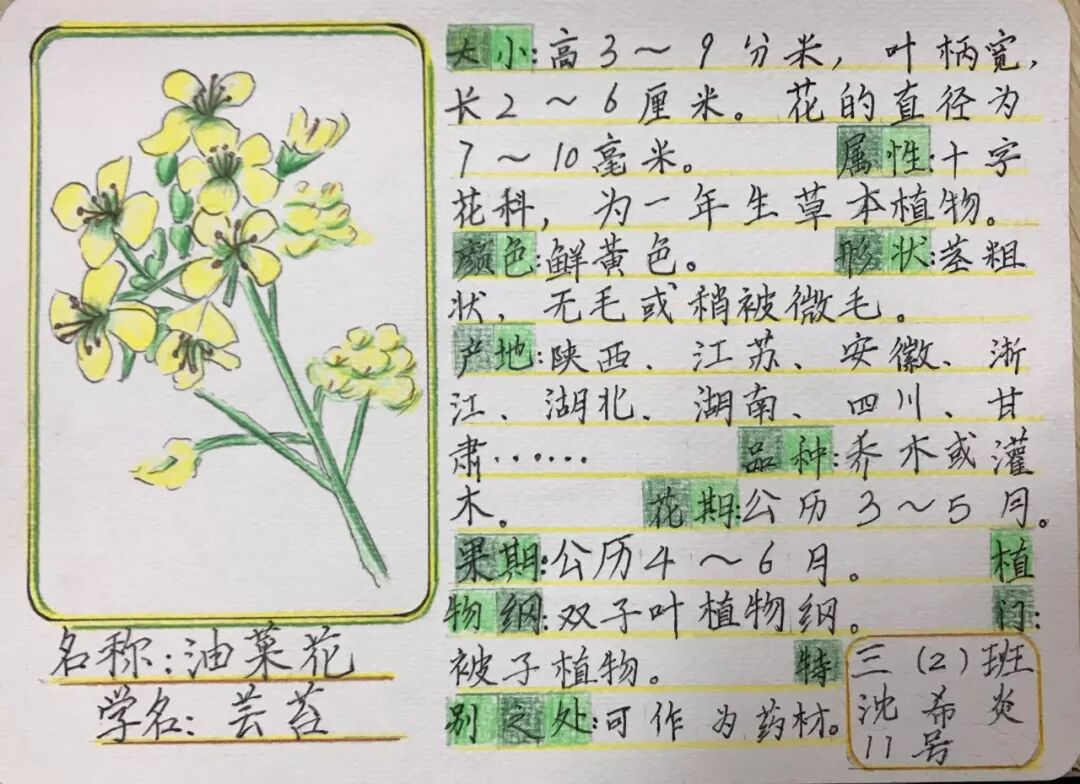 大小:高3～9分米,叶柄宽,
长2～6厘米。花的直径为
7～10毫米。 属性:十字
花科,为一年生草本植物。
颜色:鲜黄色。 形状:茎粗
状,无毛或稍被微毛。
产地:陕西、江苏、安徽、浙
江、湖北、湖南、四川、甘
肃…… 品种:乔木或灌
木。 花期:公历3～5月。
果期:公历4～6月。 植
物纲:双子叶植物纲。 门:
被子植物。 特
别之处:可作为药材。
名称:油菜花
学名:芸苔
三(2)班
沈希炎
11号